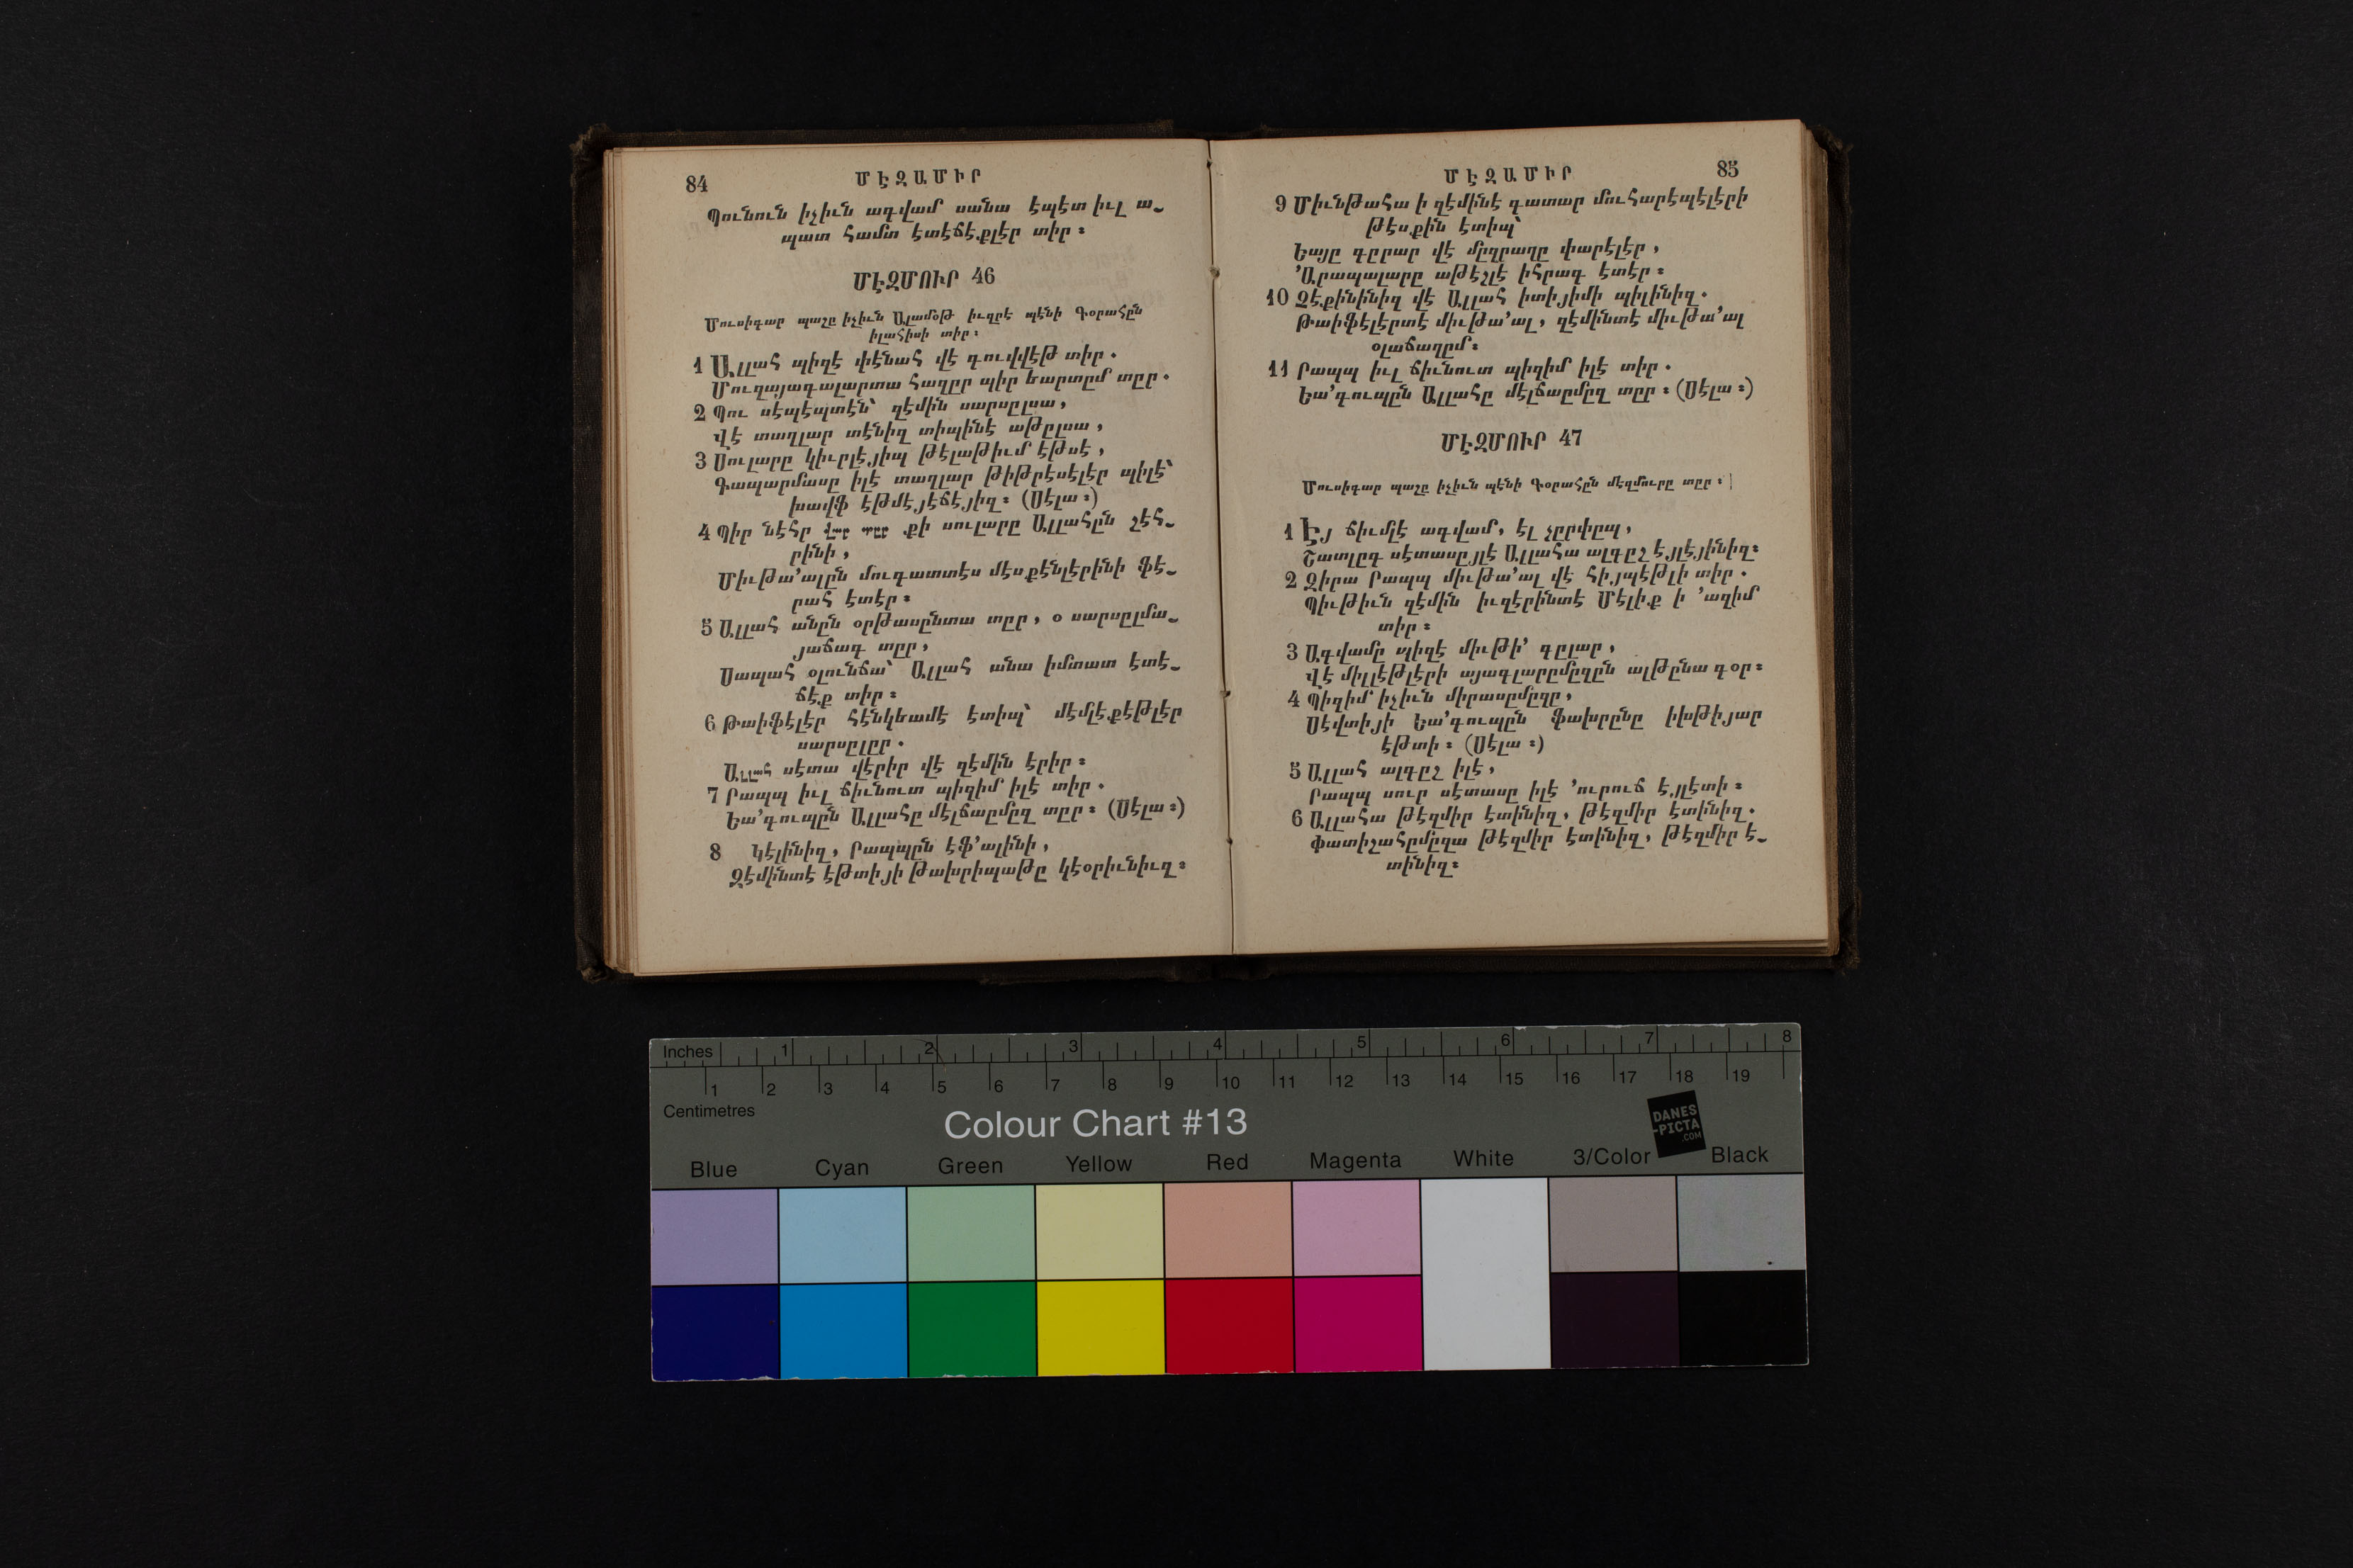 84
ՄԷԶԱՄԻՐ
Պունուն իչիւն ագվամ սանա էպէտ իւլ ա֊
պատ համտ էտէճէքլէր տիր։
ՄԷԶՄՈՒՐ 46
Մուսիգար պաշը իչիւն Ալամօթ իւզրէ պէնի Գօրահըն
իլահիսի տիր։
1 Ալլահ պիզէ փէնահ վէ գուվվէթ տիր.
Մուզայագալարտա հազըր պիր եարտըմ տըր.
2 Պու սէպէպտէն՝ զէմին սարսըլսա,
Վէ տաղլար տէնիզ տիպինէ աթըլսա,
3 Սուլարը կիւրլէյիպ թէլաթիւմ էթսէ,
Գապարմասը իլէ տաղլար թիթրէսէլէր պիլէ՝
խավֆ էթմէյէճէյիզ։ (Սէլա։)
4 Պիր նէհր վար տըր քի սուլարը Ալլահըն շէհ֊
րինի,
Միւթա՚ալըն մուգատտէս մէսքէնլէրինի ֆէ֊
րահ էտէր։
5 Ալլահ անըն օրթասընտա տըր, օ սարսըլմա֊
յաճագ տըր,
Սապահ օլունճա՝ Ալլահ անա իմտատ էտէ֊
ճէք տիր։
6 Թաիֆէլէր հէնկեամէ էտիպ՝ մէմլէքէթլէր
սարսըլըր.
Ալլահ սէտա վէրիր վէ զէմին էրիր։
7 Րապպ իւլ ճիւնուտ պիզիմ իլէ տիր.
Եա՚գուպըն Ալլահը մէլճաըմըզ տըր։ (Սէլա։)
8 Կէլինիզ, Րապպըն էֆ՚ալինի,
Զէմինտէ էթտիյի թախրիպաթը կէօրիւնիւզ։
85
ՄԷԶԱՄԻՐ
9 Միւնթահա ի զէմինէ գատար մուհարէպէլէրի
թէսքին էտիպ՝
Եայը գըրար վէ մըզրաղը փարէլէր,
՚Արապալարը աթէշլէ իհրագ էտէր։
10 Չէքինինիզ վէ Ալլահ իտիյիմի պիլինիզ.
Թաիֆէլէրտէ միւթա՚ալ, զէմինտէ միւթա՚ալ
օլաճաղըմ։
11 Րապպ իւլ ճիւնուտ պիզիմ իլէ տիր.
Եա՚գուպըն Ալլահը մէլճաըմըզ տըր։ (Սէլա։)
ՄԷԶՄՈՒՐ 47
Մուսիգար պաշը իչիւն պէնի Գօրահըն մէզմուրը տըր։
1 Էյ ճիւմլէ ագվամ, էլ չըրփըպ,
Շատլըգ սէտասըյլէ Ալլահա ալգըշ էյլէյինիզ։
2 Զիրա Րապպ միւթա՚ալ վէ հիյպէթլի տիր.
Պիւթիւն զէմին իւզէրինտէ Մէլիք ի ՚ազիմ
տիր։
3 Ագվամը պիզէ միւթի՚ գըլար,
Վէ միլլէթլէրի այագլարըմըզըն ալթընա գօր։
4 Պիզիմ իչիւն միրասըմըզը,
Սէվտիյի Եա՚գուպըն ֆախրընը իխթիյար
էթտի։ (Սէլա։)
5 Ալլահ ալգըշ իլէ,
Րապպ սուր սէտասը իլէ ՚ուրուճ էյլէտի։
6 Ալլահա թէզմիր էտինիզ, թէզմիր էտինիզ.
Փատիշահըմըզա թէզմիր էտինիզ, թէզմիր է֊
տինիզ։
Inches 1 2 3 4 5 6 7 8
1 2 3 4 5 6 7 8 9 10 11 12 13 14 15 16 17 18 19
Centimetres
Colour Chart #13
DANES
-PICTA
.COM
Blue Cyan Green Yellow Red Magenta White 3/Color Black